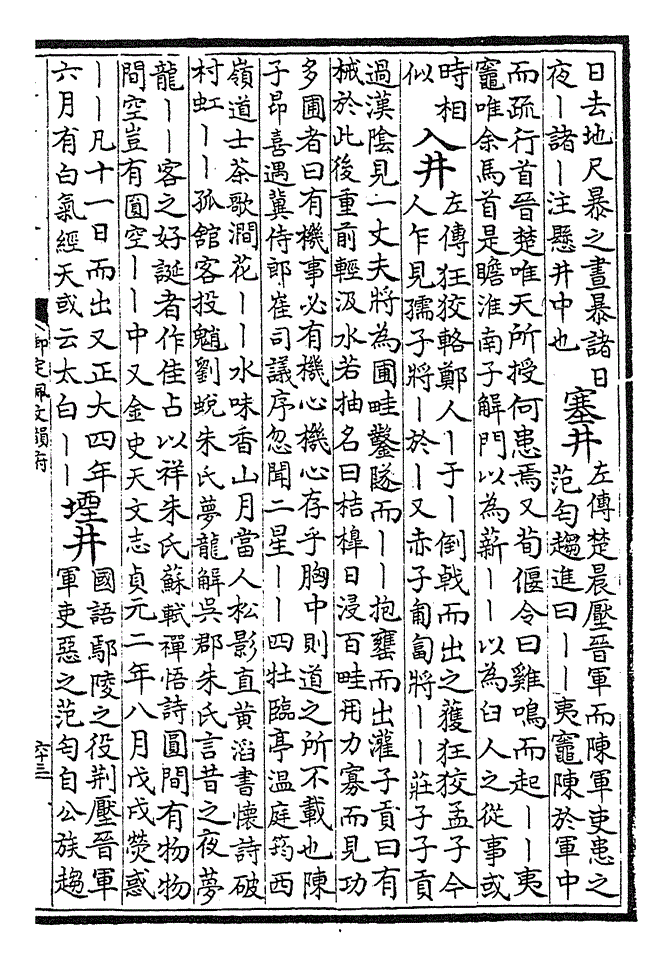 日去地尺暴之晝暴諸日
夜｜諸｜注懸井中也
塞井
左傳楚晨壓晉軍而陳軍吏患之
范匄趨進曰｜｜夷竈陳於軍中
而疏行首晉楚唯天所授何患焉又荀偃令曰雞鳴而起｜｜夷
竈唯余馬首是瞻淮南子解門以為薪｜｜以為臼人之從事或
時相
似
入井
左傳狂狡輅鄭人｜于｜倒戟而出之獲狂狡孟子今
人乍見孺子將｜於｜又赤子匍匐將｜｜莊子子貢
過漢陰見一丈夫將為圃畦鑿隧而｜｜抱甕而出灌子貢曰有
械於此後重前輕汲水若抽名曰桔槔日浸百畦用力寡而見功
多圃者曰有機事必有機心機心存乎胸中則道之所不載也陳
子昂喜遇冀侍郎崔司議序忽聞二星｜｜四牡臨亭温庭筠西
嶺道士茶歌澗花｜｜水味香山月當人松影直黄滔書懷詩破
村虹｜｜孤館客投魈劉蛻朱氏夢龍解吳郡朱氏言昔之夜夢
龍｜｜客之好誕者作佳占以祥朱氏蘇軾禪悟詩圓間有物物
間空豈有圓空｜｜中又金史天文志貞元二年八月戊戌熒惑
｜｜凡十一日而出又正大四年
六月有白氣經天或云太白｜｜
堙井
國語鄢陵之役荆壓晉軍
軍吏惡之范匄自公族趨
御定佩文韻府
六十三